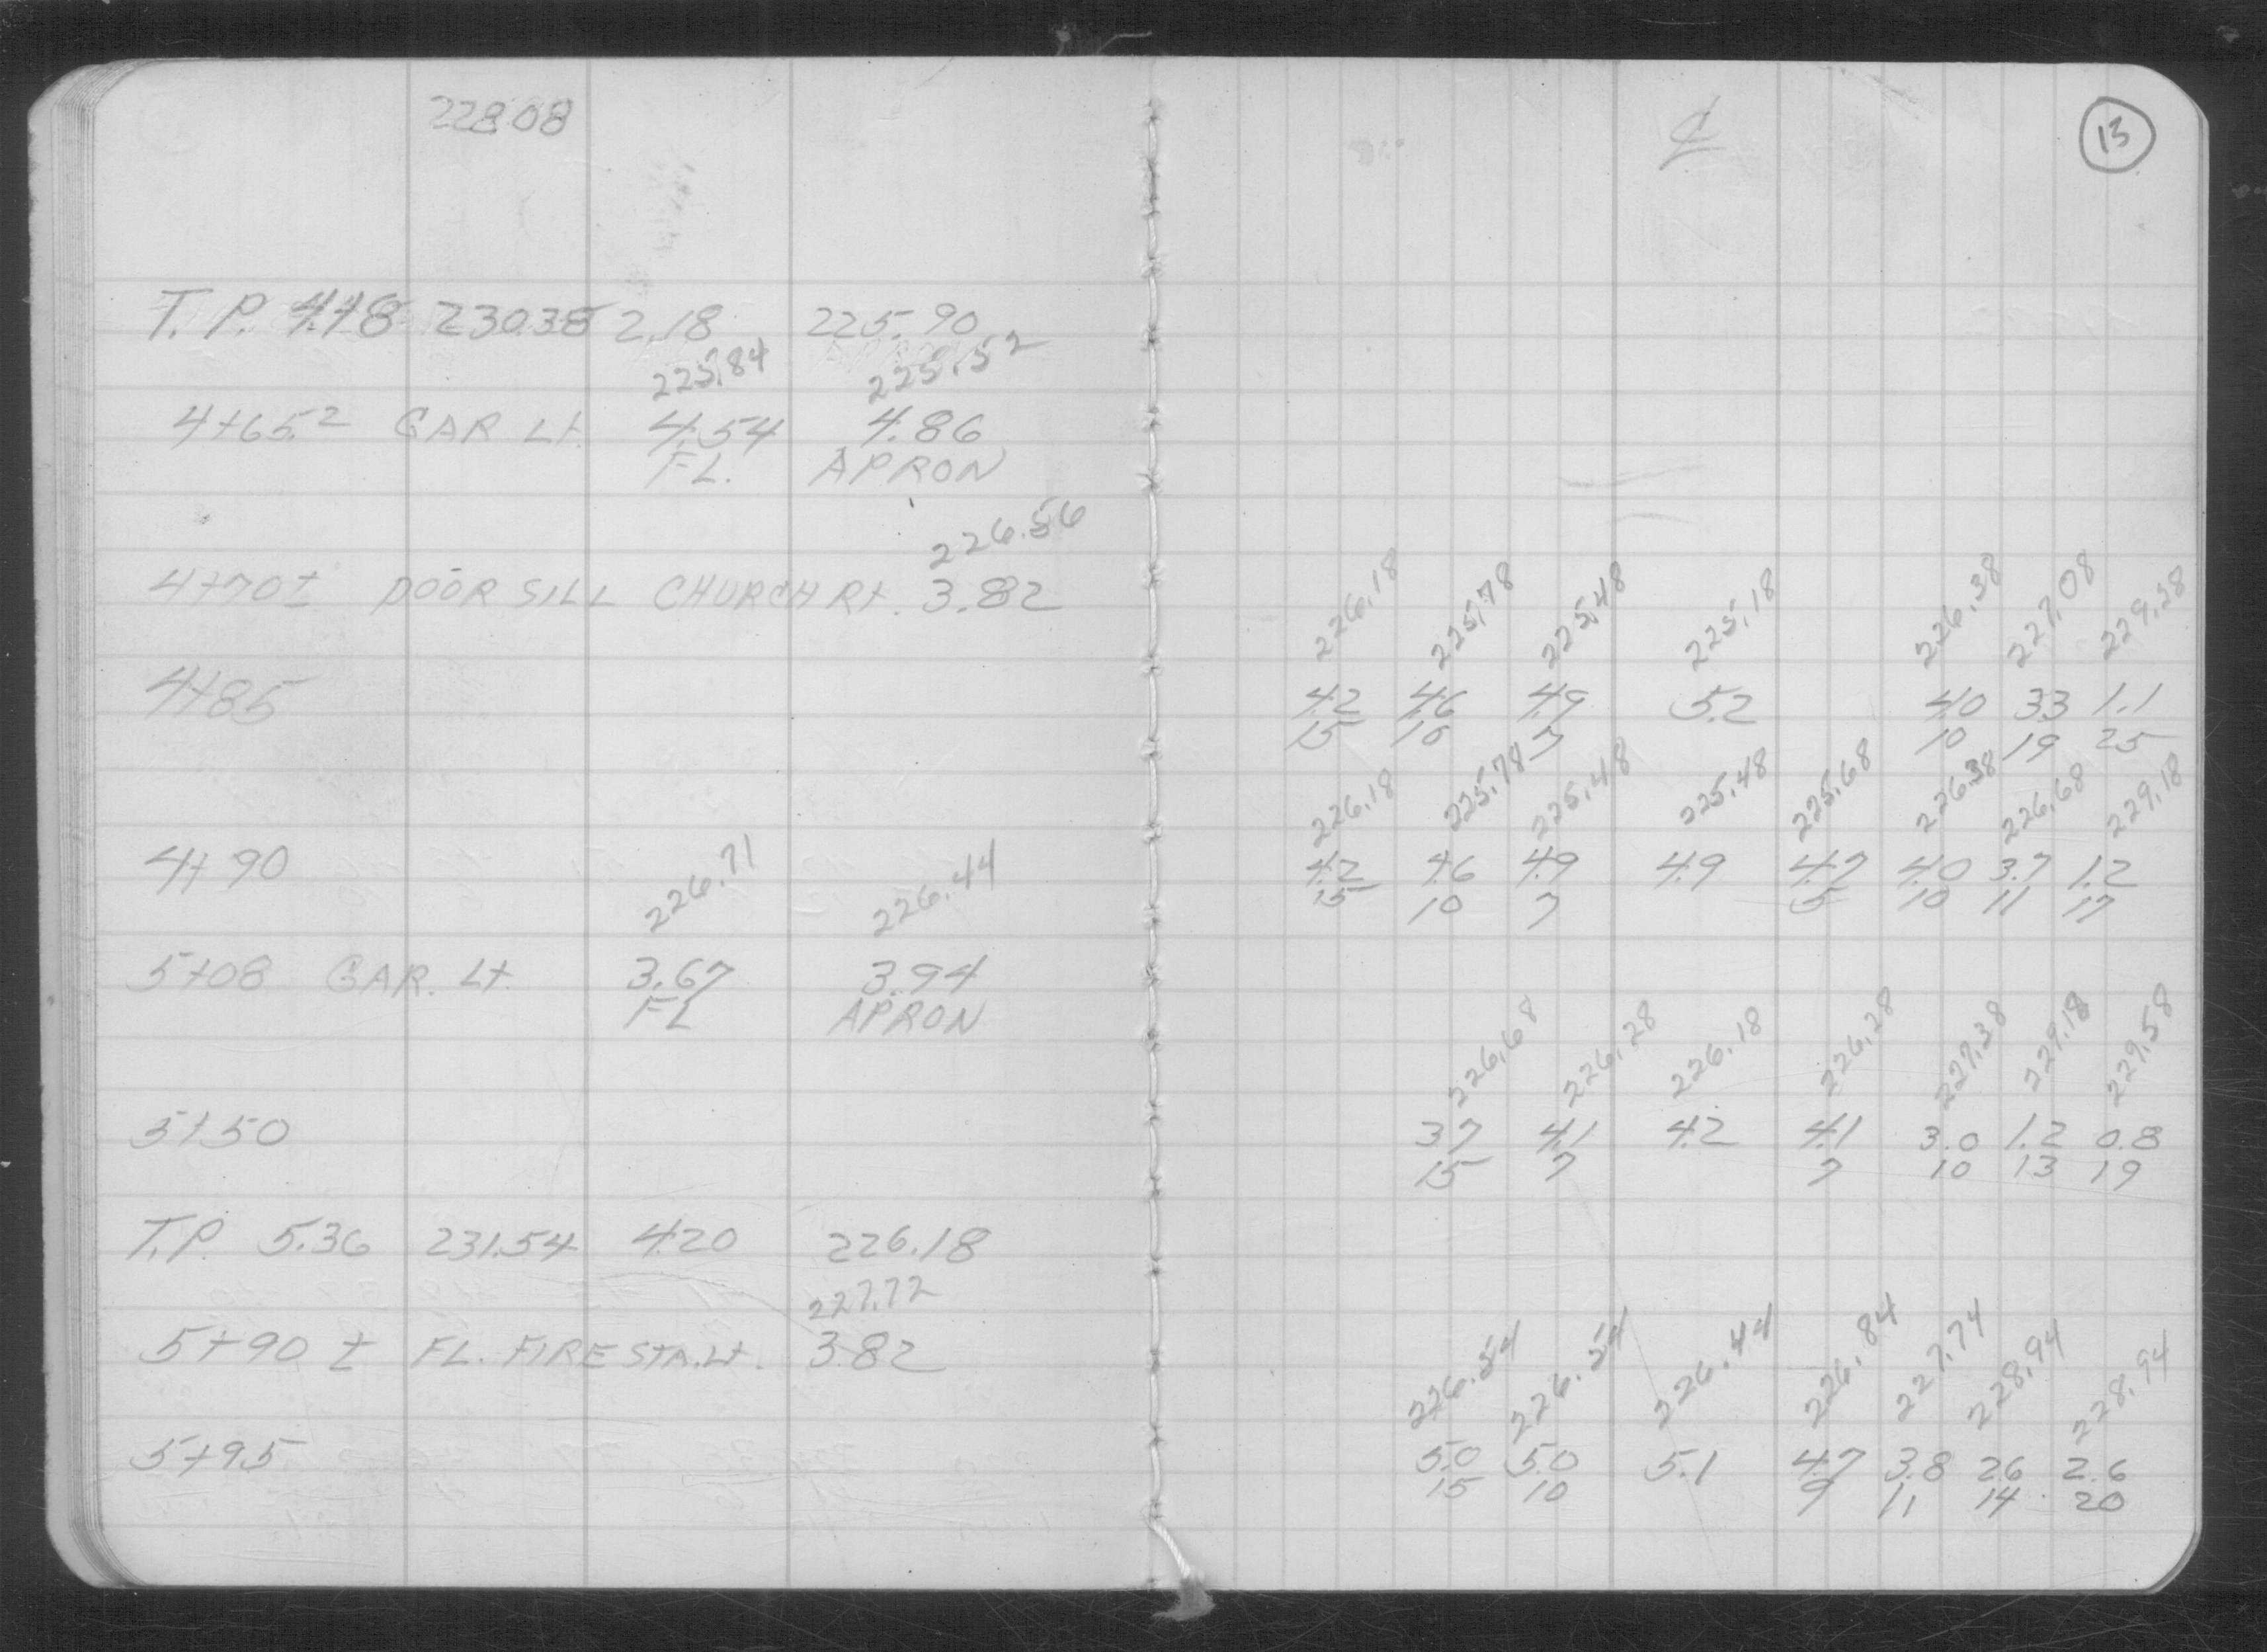 228.08
℄
13
T.P. 4.48 230.38 2.18 225.90
225.84 225.52
4+65.2 GAR Lt. 4.54 4.86
FL. APRON
226.56
4+70± DOOR SILL CHURCH Rt. 3.82
226.18 225.78 225.48 225.18 226.38 227.08 229.28
4+85 4.2 4.6 4.9 5.2 4.0 3.3 1.1
15 10 7 10 19 25
226.18 225.78 225.48 225.48 225.68 226.38 226.68 229.18
4+90 4.2 4.6 4.9 4.9 4.7 4.0 3.7 1.2
15 10 7 5 10 11 17
226.71 226.44
5+08 GAR. Lt. 3.67 3.94
FL APRON
226.68 226.28 226.18 226.28 227.38 229.18 229.58
5+50 3.7 4.1 4.2 4.1 3.0 1.2 0.8
15 7 7 10 13 19
T.P. 5.36 231.54 4.20 226.18
227.72
5+90 ± FL. FIRE STA. Lt. 3.82
226.54 226.54 226.44 226.84 227.74 228.94 228.94
5+95 5.0 5.0 5.1 4.7 3.8 2.6 2.6
15 10 9 11 14 20